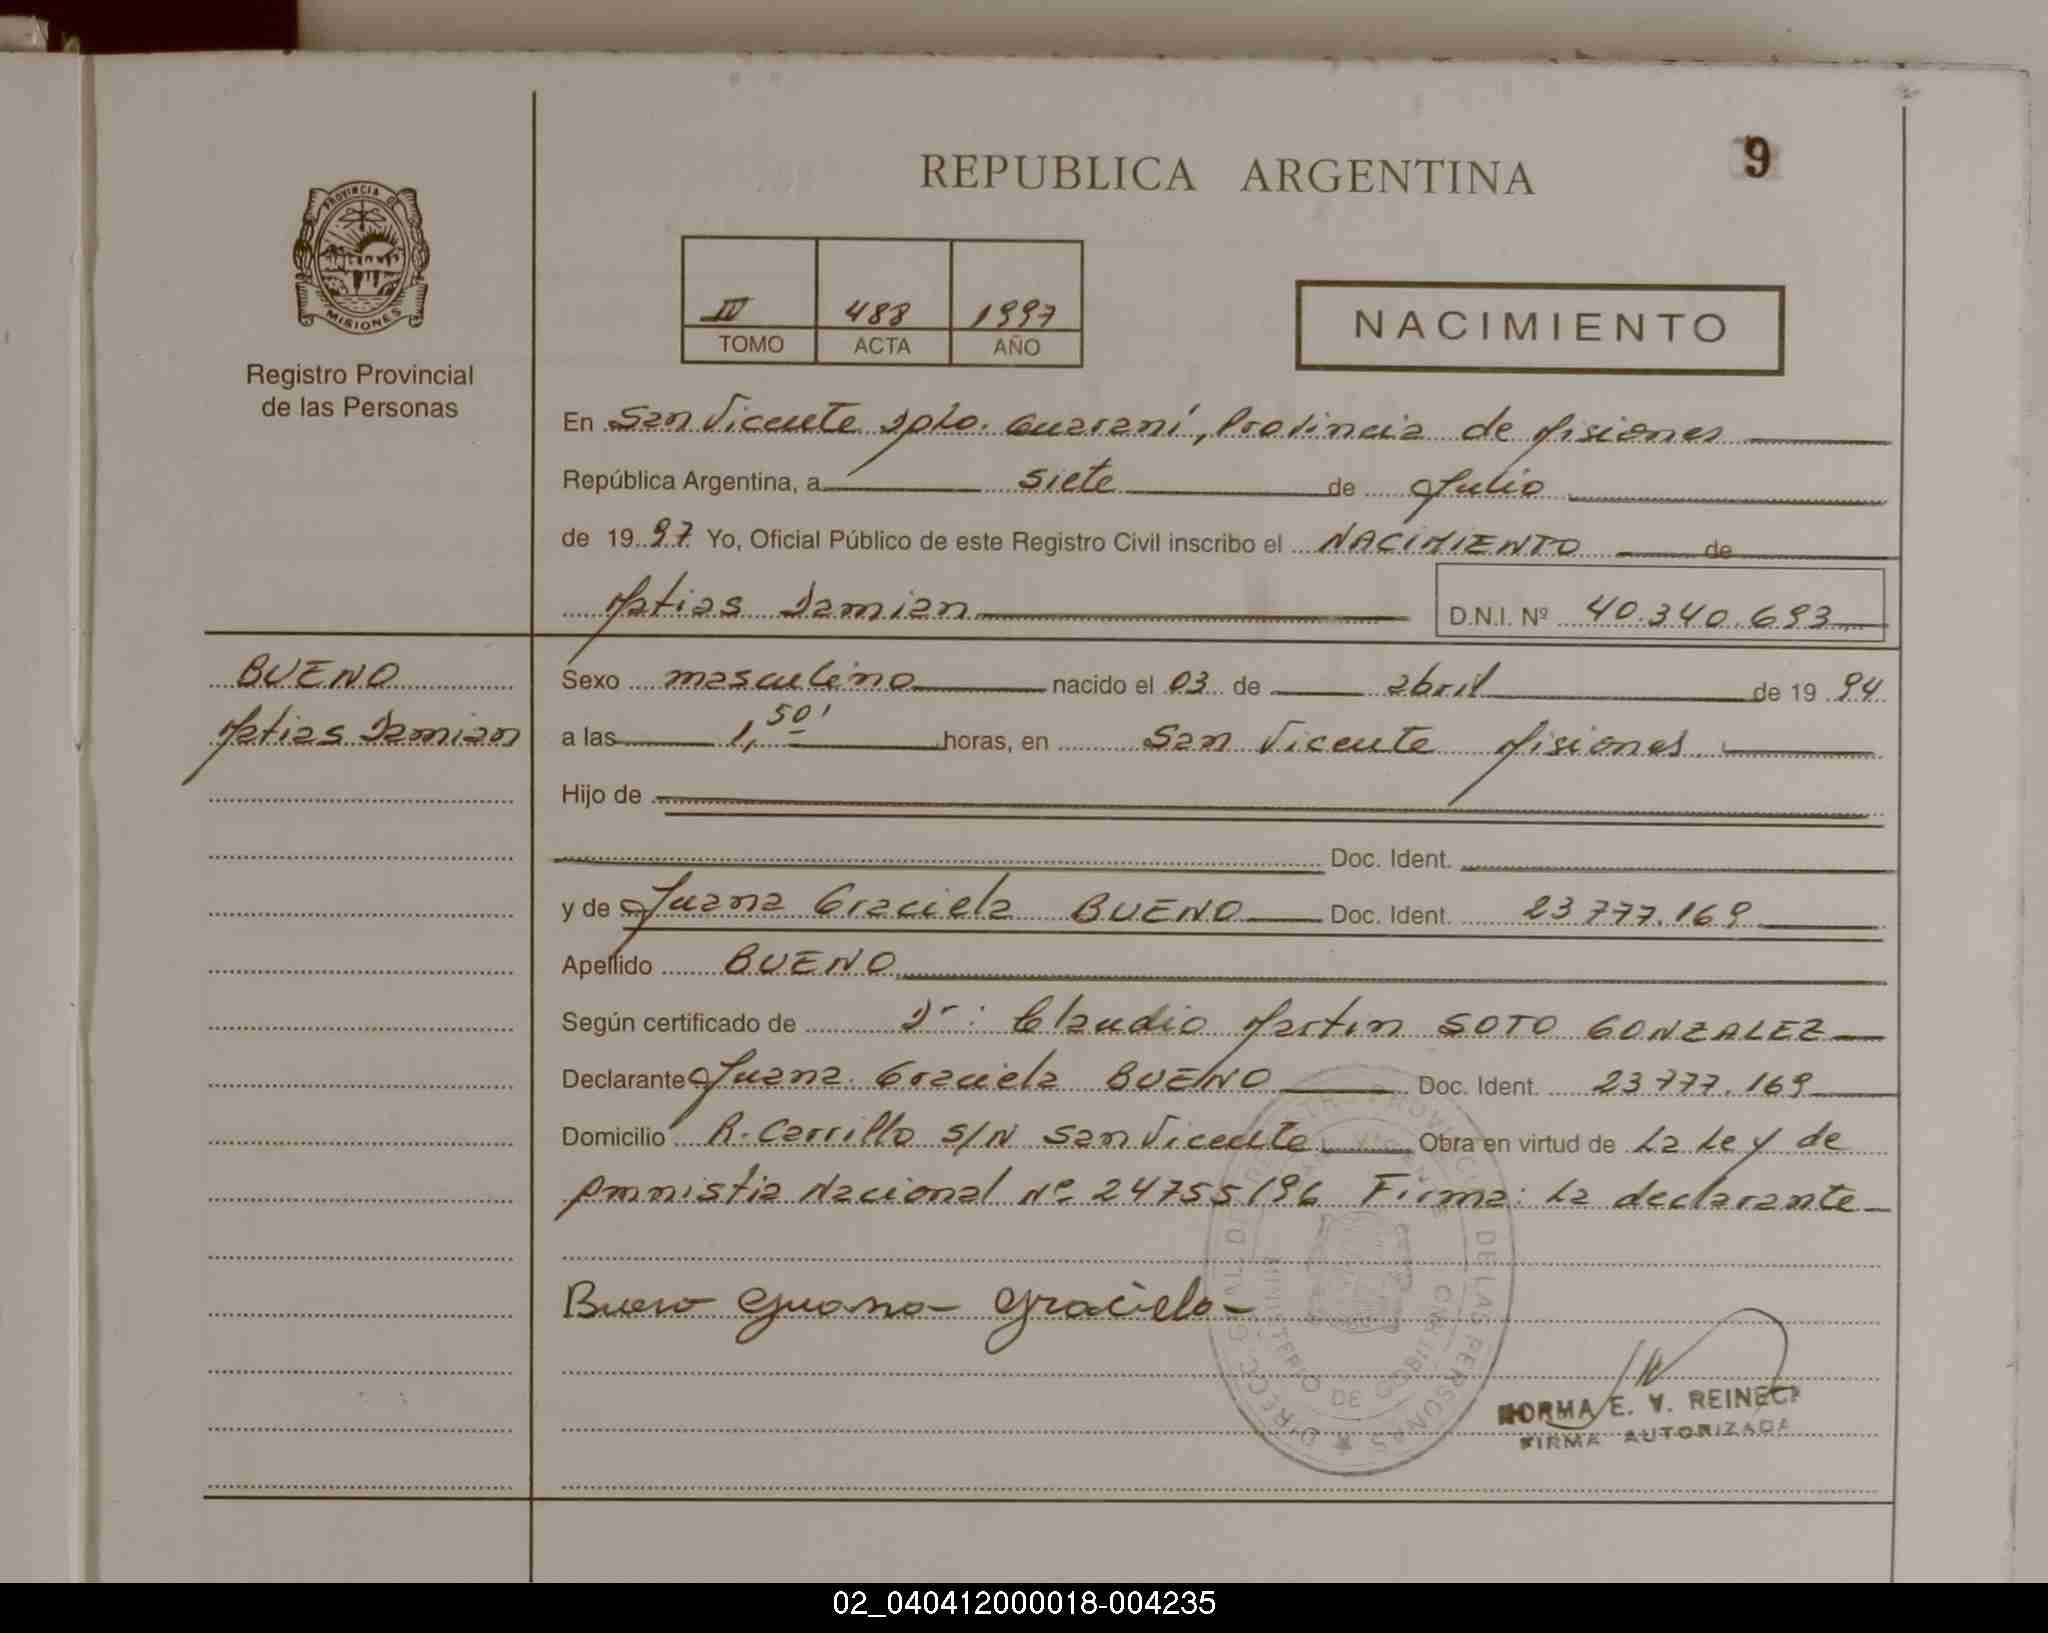 REPUBLICA ARGENTINA
9
PROVINCIA DE
MISIONES
Registro Provincial
de las Personas
IV 488 1997
TOMO ACTA AÑO
NACIMIENTO
En San Vicente Dpto. Guaraní, Provincia de Misiones
República Argentina, a siete de Julio
de 1997 Yo, Oficial Público de este Registro Civil inscribo el NACIMIENTO de
Matias Damian D.N.I. Nº 40.340.693
BUENO
Matias Damian
Sexo masculino nacido el 03 de abril de 1994
a las 1,50' horas, en San Vicente Misiones
Hijo de
Doc. Ident.
y de Juana Graciela BUENO Doc. Ident. 23777.169
Apellido BUENO
Según certificado de Dr: Claudio Martin SOTO GONZALEZ
Declarante Juana Graciela BUENO Doc. Ident. 23777.169
Domicilio R. Carrillo S/N San Vicente Obra en virtud de La Ley de
Amnistia Nacional Nº 24755/96 Firma: La declarante
Bueno Juana Graciela
NORMA E. V. REINECK
FIRMA AUTORIZADA
MINISTERIO DE GOBIERNO
DE LAS PERSONAS
02_040412000018-004235